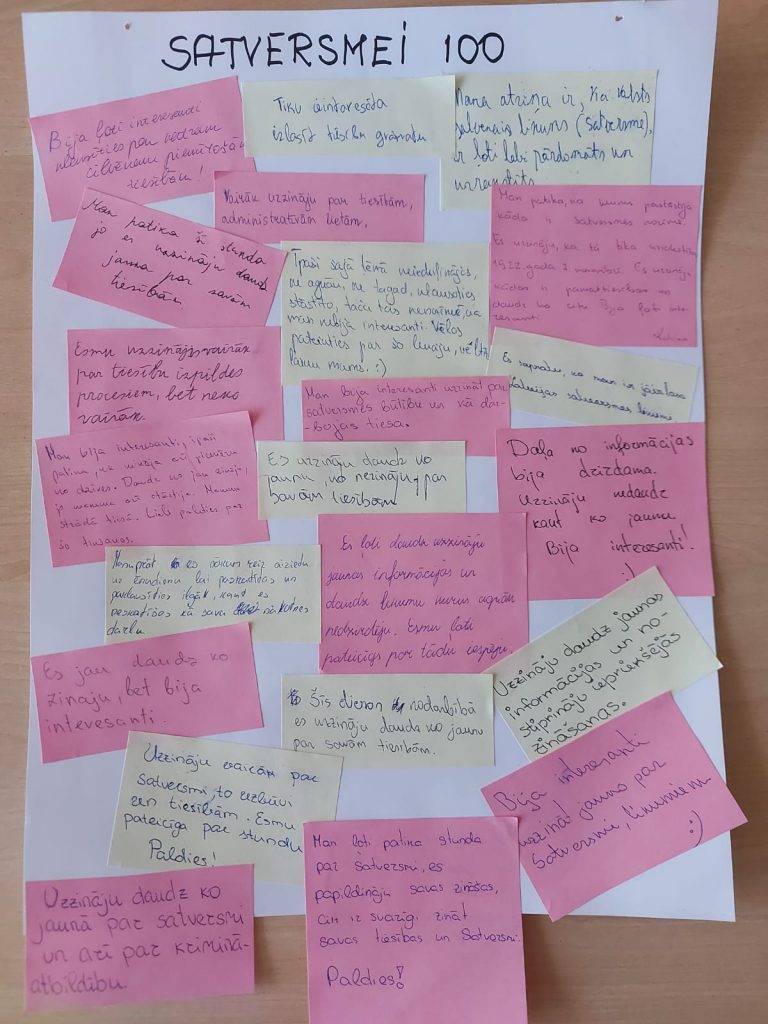 SATVERSMEI 100
Bija ļoti interesanti
klausīties par
cilvēkiem piemērotām
tiesībām!
Tiku ieinteresēta
izlasīt tiesību grāmatu
Mana atziņa ir, ka valsts
galvenais likums (Satversme),
ir ļoti labi pārdomāts un
uzrakstīts.
Vairāk uzzināju par tiesībām,
administratīvām lietām.
Man patika, ka mums pastāstīja
kāda ir satversmes nozīme.
Es uzzināju, ka tā tika
1922. gada 7. novembrī. Es uzzināju
kādas ir pamattiesības un
daudz ko citu. Bija ļoti inte-
resanti
Man patika šī stunda
jo es uzzināju daudz
jauna par savām
tiesībām
Īpaši šajā tēmā neiedziļinājos,
ne agrāk, ne tagad, klausoties
stāstīto, taču tas nenozīmē, ka
man nebija interesanti. Vēlos
pateikties par šo lekciju, vēl
likumu mums. :)
Esmu uzzinājis vairāk
par tiesību izpildes
procesiem, bet neko
vairāk.
Es sapratu, ka man ir jāizlasa
Latvijas satversmes likumi.
Man bija interesanti uzzināt par
satversmes būtību un kā dar-
bojas tiesa.
Man bija interesanti, īpaši
patika, ka
no dzīves. Daudz ko jau zināju,
jo mamma arī stāstīja. Mamma
strādā tiesā. Liels paldies par
šo tikšanos.
Es uzzināju daudz ko
jaunu, ko nezināju, par
savām tiesībām
Daļa no informācijas
bija dzirdama.
Uzzināju nedaudz
kaut ko jaunu
Bija interesanti!
:)
Es ļoti daudz uzzināju
jaunas informācijas un
daudz likumu kurus agrāk
nedzirdēju. Esmu ļoti
pateicīgs par tādu iespēju.
Manuprāt es
uz ēnudienu lai paskatītos un
ilgāk, kaut es
neskatītos kā sava nākotnes
darbu
Es jau daudz ko
zināju, bet bija
interesanti.
Šīs dienas nodarbībā
es uzzināju daudz ko jaunu
par savām tiesībām.
Uzzināju daudz jaunas
informācijas un no-
stiprināju iepriekšējās
zināšanas.
Uzzināju vairāk par
satversmi, to uzbūvi
un tiesībām. Esmu
pateicīga par stundu
Paldies!
Bija interesanti
uzzināt jauno par
Satversmi, likumiem.
:)
Man ļoti patika stunda
par satversmi, es
papildināju savas zināšas,
cik ir svarīgi zināt
savas tiesības un Satversmi.
Paldies!
Uzzināju daudz ko
jaunā par satversmi
un arī par krimināl-
atbildību.